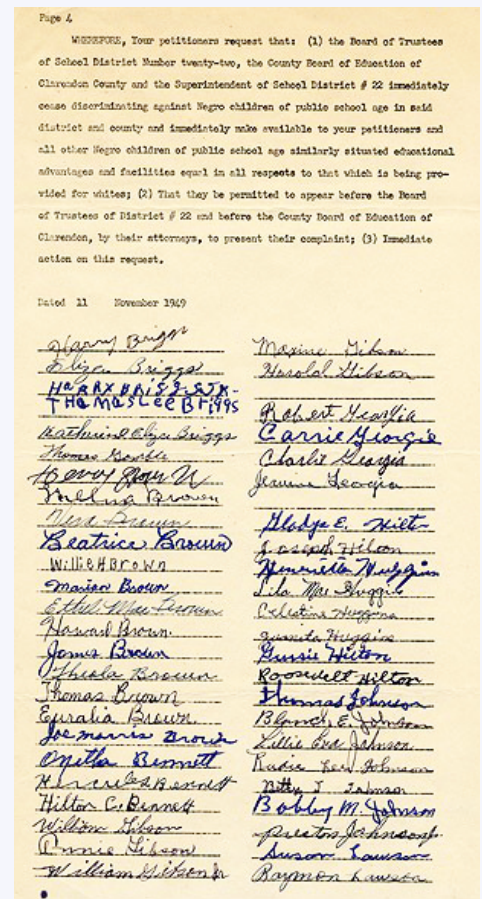 Page 4
WHEREFORE, Your petitioners request that: (1) the Board of Trustees
of School District Number twenty-two, the County Board of Education of
Clarendon County and the Superintendent of School District # 22 immediately
cease discriminating against Negro children of public school age in said
district and county and immediately make available to your petitioners and
all other Negro children of public school age similarly situated educational
advantages and facilities equal in all respects to that which is being pro-
vided for whites; (2) That they be permitted to appear before the Board
of Trustees of District # 22 and before the County Board of Education of
Clarendon, by their attorneys, to present their complaint; (3) Immediate
action on this request.
Dated 11 November 1949
Harry Briggs
Eliza Briggs
HARRY BRIGGS JR.
THOMAS Lee Briggs
Katherine Eliza Briggs
Thomas Gamble
Henry Brown
Thelma Brown
Vera Brown
Beatrice Brown
Willie H Brown
Marian Brown
Ethel Mae Brown
Howard Brown
James Brown
Theola Brown
Thomas Brown
Euralia Brown
Joe morris Brown
Onetha Bennett
Hercules Bennett
Hilton C. Bennett
William Gibson
Annie Gibson
William Gibson Jr
Maxine Gibson
Harold Gibson
Robert Georgia
Carrie Georgia
Charlie Georgia
Jervine Georgia
Gladys E. Hilton
Joseph Hilton
Henrietta Huggins
Lila Mae Huggins
Celestine Huggins
Juanita Huggins
Gussie Hilton
Roosevelt Hilton
Thomas Johnson
Blanch E. Johnson
Lillie Eva Johnson
Rudie Lee Johnson
Betty J Johnson
Bobby M. Johnson
Preston Johnson Jr
Susan Lawson
Raymon Lawson